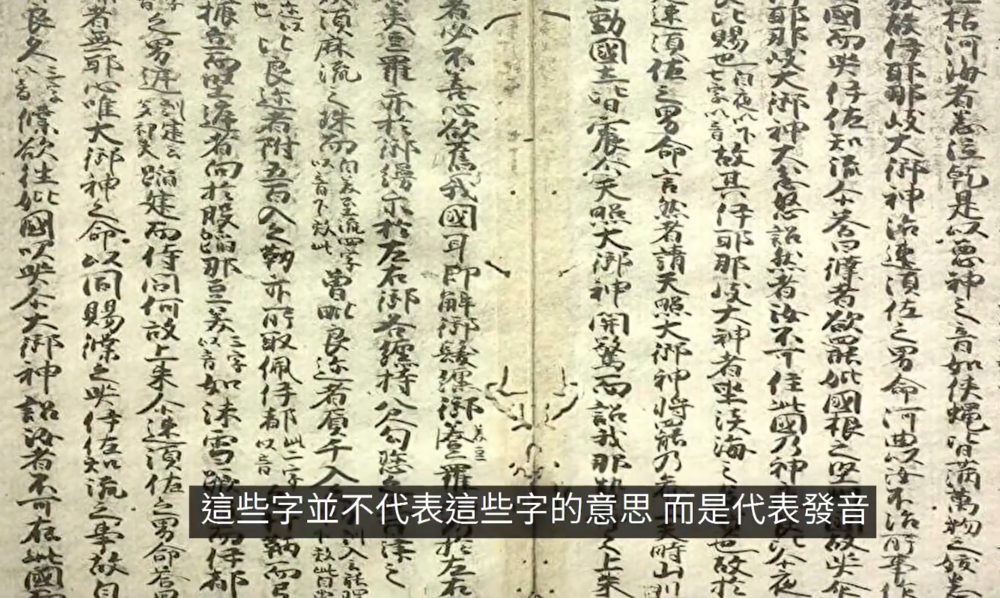 枯河海者悉泣乾是以惡神之音如狭蝿皆満萬物之妖悉
發故伊耶那岐大御神詔速須佐之男命何由以汝不治所事依
國而哭伊佐知流尒荅白僕者欲罷妣國根之堅故哭尒
耶那岐大御神大忿怒詔然者汝不可住此國乃神比尒夜
良比賜也自夜以下七字以音故其伊耶那岐大神者坐淡海之也故於
速須佐之男命言然者請天照大御神将罷乃天時山川
動國土皆震尒天照大御神聞驚而詔我那勢之上来
者必不善心欲奪我國耳即解御髪纏御美豆羅於左右
美豆羅亦於御縵亦於左右御手各纏持八尺勾璁之津之
須麻流之珠而自美至流四字以音下效此曾毗良迩者負千入
比良迩者附五百入之靫亦所取佩伊都此二字以音鞆而弓
振立而堅庭者向於股蹈那豆美三字以音如沫雪蹶而伊都
之男建訓建云蹈建而待問何故上来尒速須佐之男命荅
者無耶心唯大御神之命以問賜僕之哭伊佐知流之事故白
良久三字以音僕欲往妣國以哭尒大御神詔汝者不可在此國
這些字並不代表這些字的意思 而是代表發音